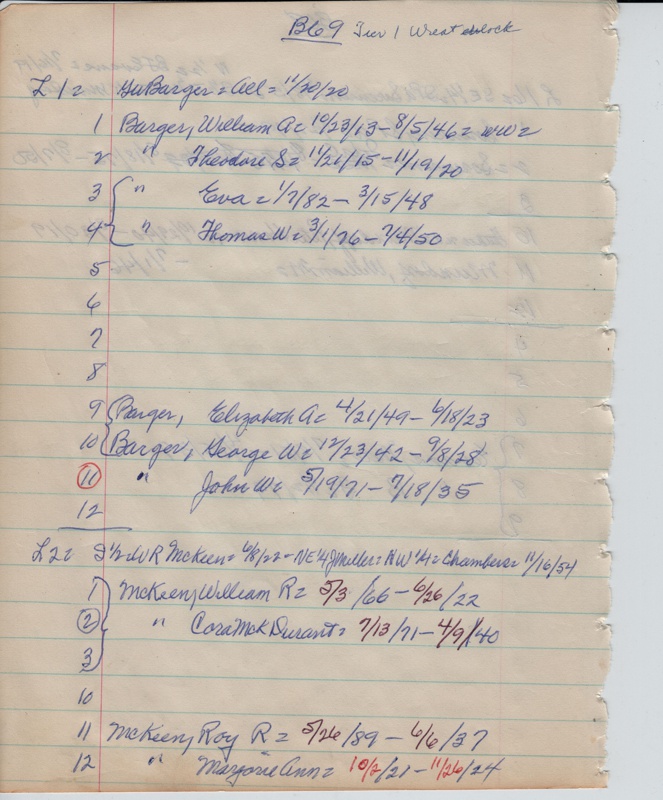 B69 Tier 1 West block
L1 = GW Barger = all = 11/20/20
1 Barger, William A = 10/23/13 - 8/5/46 = WW =
2 " Theodore S = 11/21/15 - 11/19/20
3 " Eva = 1/7/82 - 3/15/48
4 " Thomas W = 3/1/76 - 7/4/50
5
6
7
8
9 Barger, Elizabeth A = 4/21/49 - 6/18/23
10 Barger, George W = 12/23/42 - 9/8/28
11 " John W = 5/19/71 - 7/18/35
12
L2 = S 1/2 W R McKeen = 6/8/22 - NE 1/4 J Miller = NW 1/4 = Chambers = 11/16/54
1 McKeen, William R = 5/3/66 - 6/26/22
2 " Cora McK Durant = 7/13/71 - 4/9/40
3
10
11 McKeen, Roy R = 5/26/89 - 6/6/37
12 " Marjorie Ann = 10/2/21 - 11/26/24